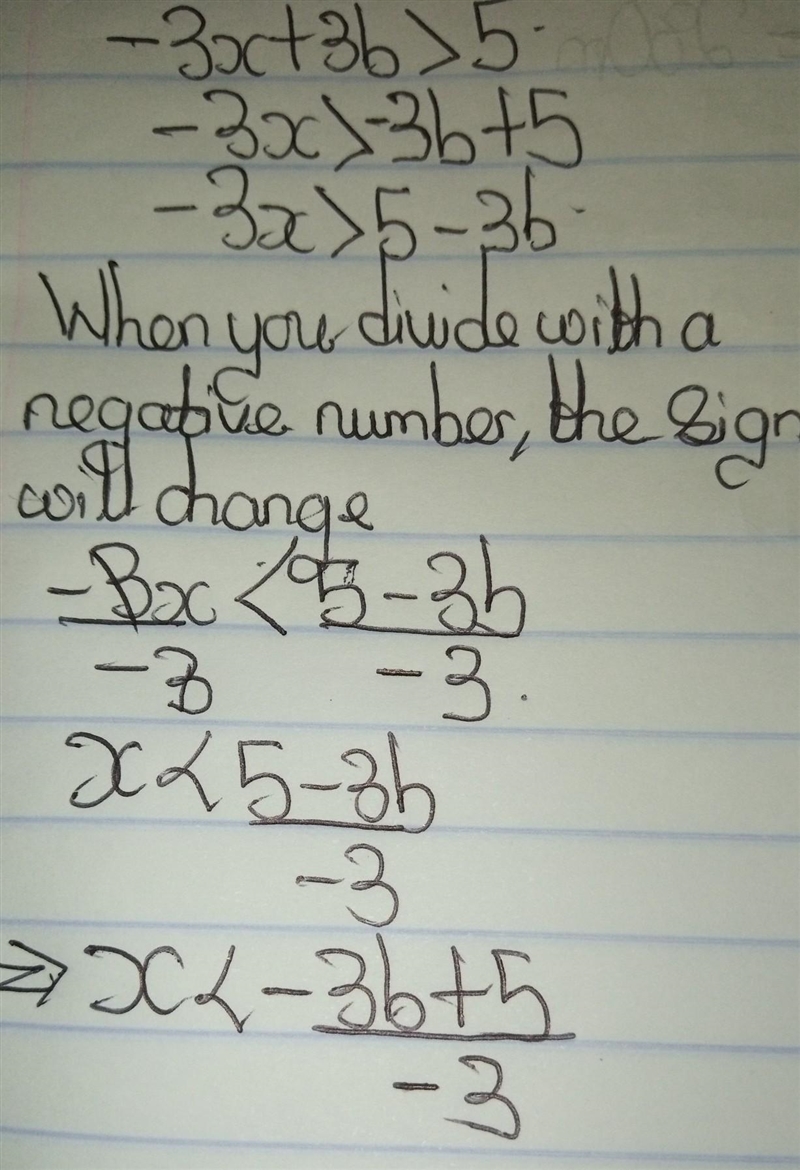 -3x+3b>5
-3x>-3b+5
-3x>5-3b
When you divide with a
negative number, the sign
will change
-3x < 5-3b
-3 -3.
x < 5-3b
-3
⇒ x < -3b+5
-3